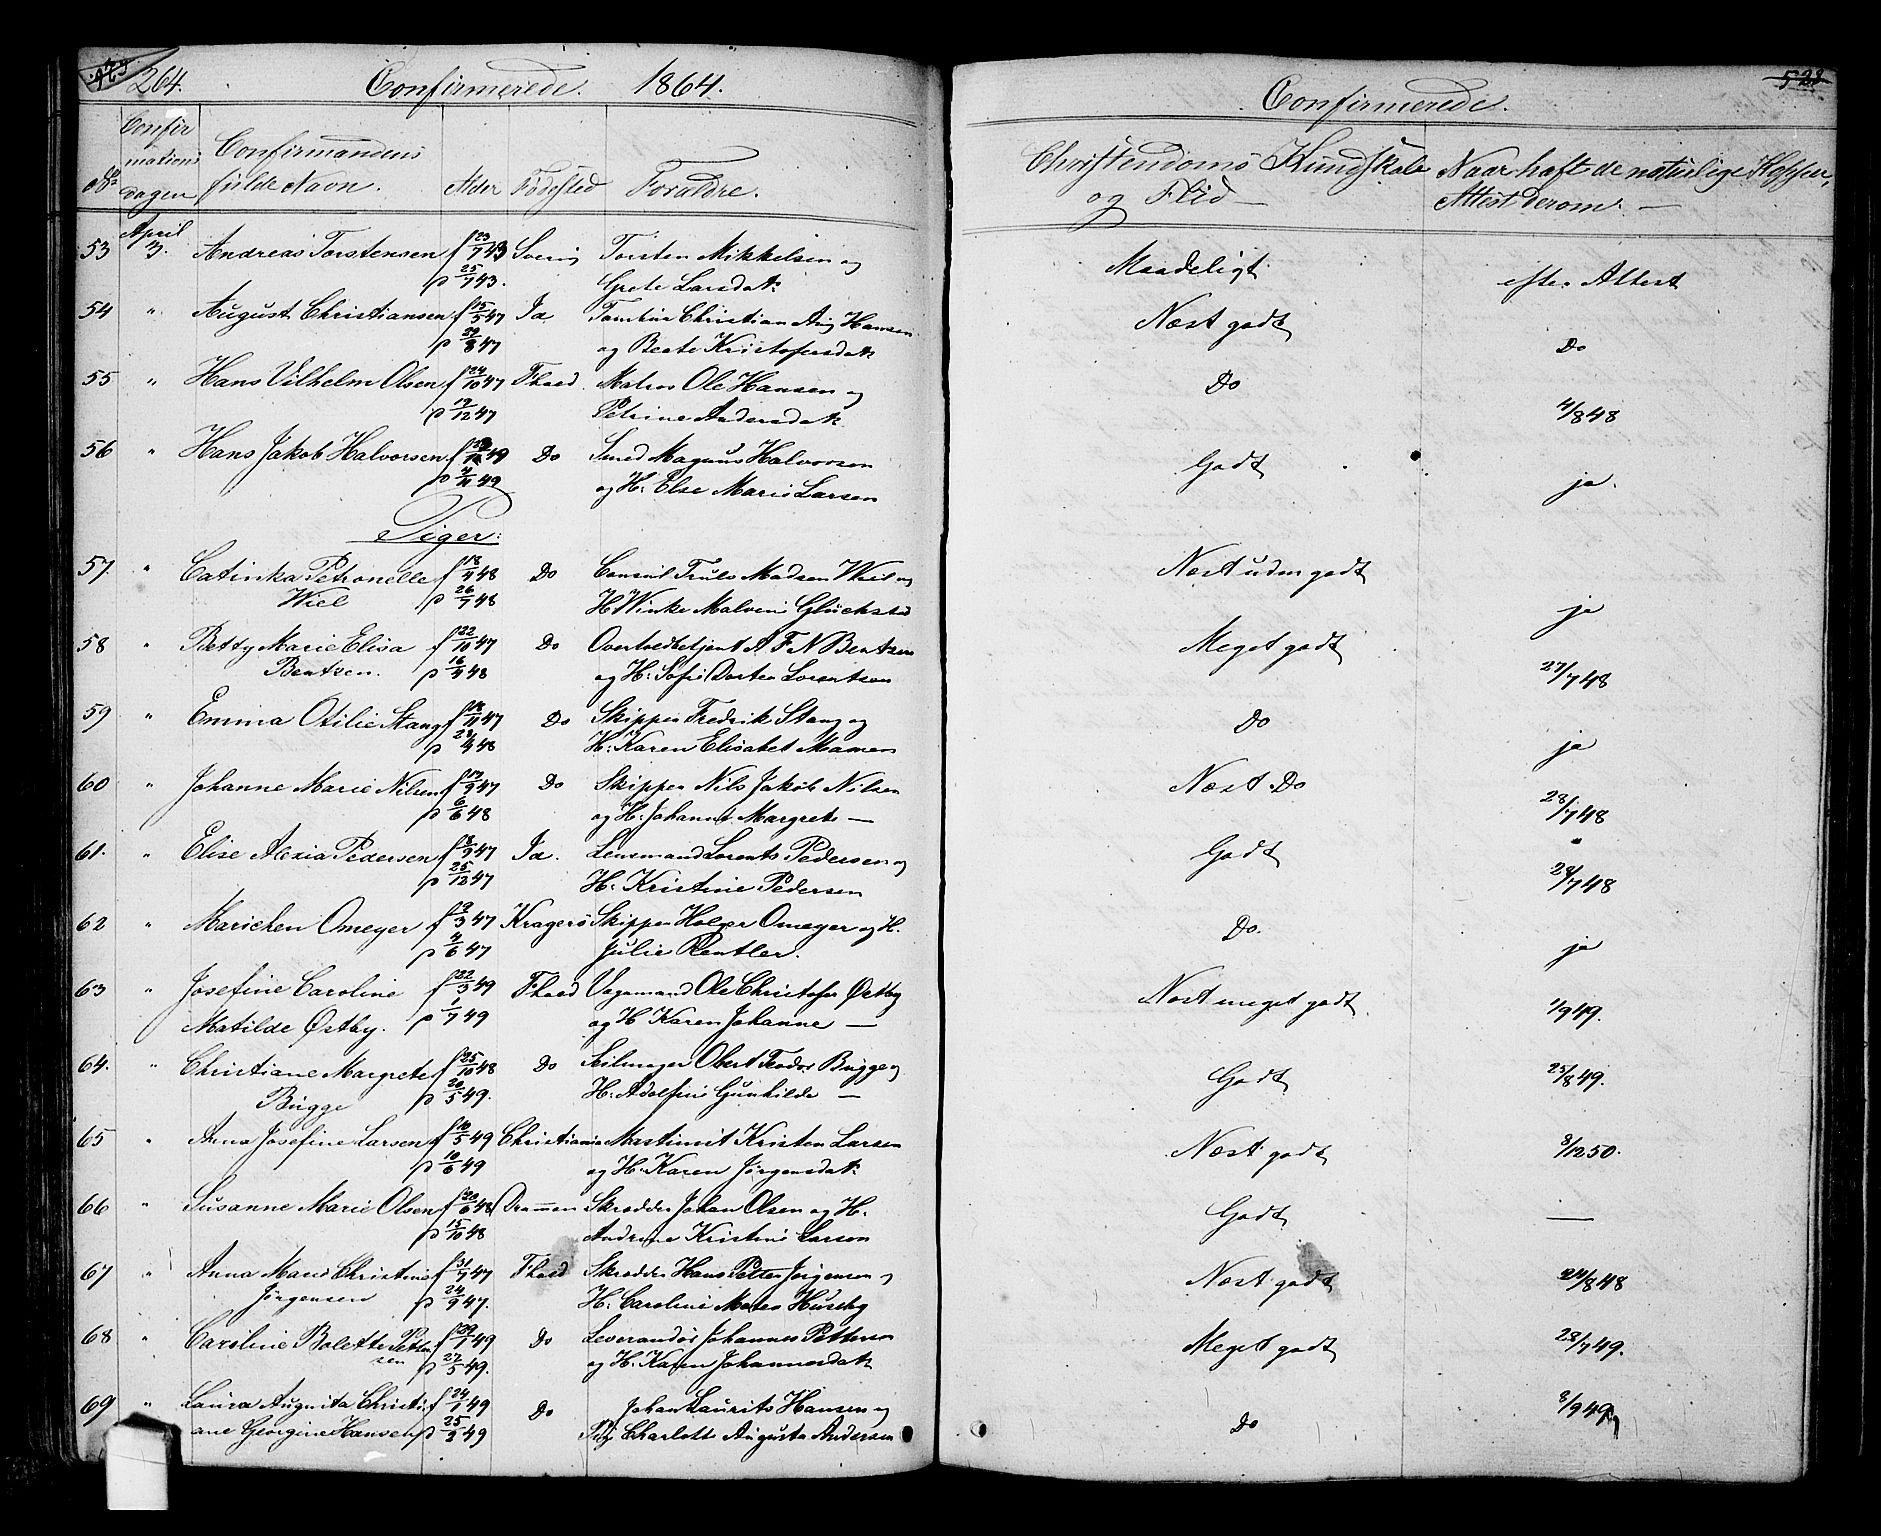 264.
Confirmerede. 1864.
No Confirmations Dagen Confirmandens fulde Navn. Alder Fødested Foraldre.
53 April 3. Andreas Torstensen f 23/7 43 Sverig Torsten Mikkelsen og
p 25/7 43. Grete Larsdat:
54 " August Christiansen f 15/5 47 Id Christian Aug Hansen
p 29/8 47 og Beate Kristofersdat:
55 " Hans Vilhelm Olsen f 24/10 47 Fhald. Matros Ole Hansen og
p 19/12 47 Petrine Andersdat:
56 " Hans Jakob Halvorsen 49 Do Smed Magnus Halvorsen
p 4/11 49 og H: Else Marie Larsen
Piger:
57. " Catinka Petronelle f 18/4 48 Do Consul Truls Madsen Wiel og
Wiel p 26/7 48 H Winke Malvine Glückstad
58 " Betty Marie Elisa f 22/10 47 Do F N Bentsen
Bentzen. p 16/4 48 og H: Sofie Dortea Lorentsen
59 " Emma Otilie Stang f 14/11 47 Do Skipper Fredrik Stang og
p 28/4 48 H: Karen Elisabet Mamen
60 " Johanne Marie Nilsen f 17/9 47 Do Skipper Nils Jakob Nilsen
p 6/6 48 og H: Johanne Margrete —
61. " Elise Alexia Pedersen f 8/9 47 Id. Lensmand Lorents Pedersen og
p 25/12 47 H: Kristine Pedersen
62 " Marichen Omeyer f 9/3 47 Kragerö Skipper Holger Omeyer og H.
p 4/6 47 Julie Rentler.
63 " Josefine Caroline f 22/3 49 Fhald Vognmand Ole Christofer Østby
Matilde Østby. p 1/7 49 og H Karen Johanne —
64. " Christiane Margrete f 25/10 48 Do Seilmager Obert Teodor Bugge og
Bugge p 20/5 49. H: Adolfine Gunhilde —
65 " Anna Josefine Larsen f 16/5 49 Christiania Kristen Larsen
p 10/6 49 og H: Karen Jörgensdat:
66 " Susanne Marie Olsen f 20/6 48 Drammen Skrædder Johan Olsen og H:
p 15/10 48 Andrine Kristine Larsen
67 " Anna Marie Christine f 31/7 47 Fhald Skrædder Hans Petter Jörgensen og
Jörgensen p 24/9 47. H: Caroline Matea Huseby
68 " Caroline Bolette Petter f 29/1 49 Do Leverandör Johannes Pettersen
sen p 27/5 49. og H: Karen Johannesdat:
69 " Laura Augusta Christi f 24/1 49 Do Johan Laurits Hansen og
ane Georgine Hansen p 25/2 49 Pig Charlotte Augusta Andersen
Confirmerede.
Christendoms Kundskab og Flid — Naar haft de naturlige Kopper, Attest derom. —
Maadeligt efter Attest
Næst godt Do
Do 4/8 48
Godt ja.
Næst udm godt ja
Meget godt 27/7 48
Do ja
Næst Do 28/7 48
Godt 28/7 48
Do. ja
Næst meget godt 1/9 49.
Godt 25/8 49.
Næst godt 8/12 50.
Godt —
Næst godt 24/8 48
Meget godt 28/7 49.
Do 8/9 49